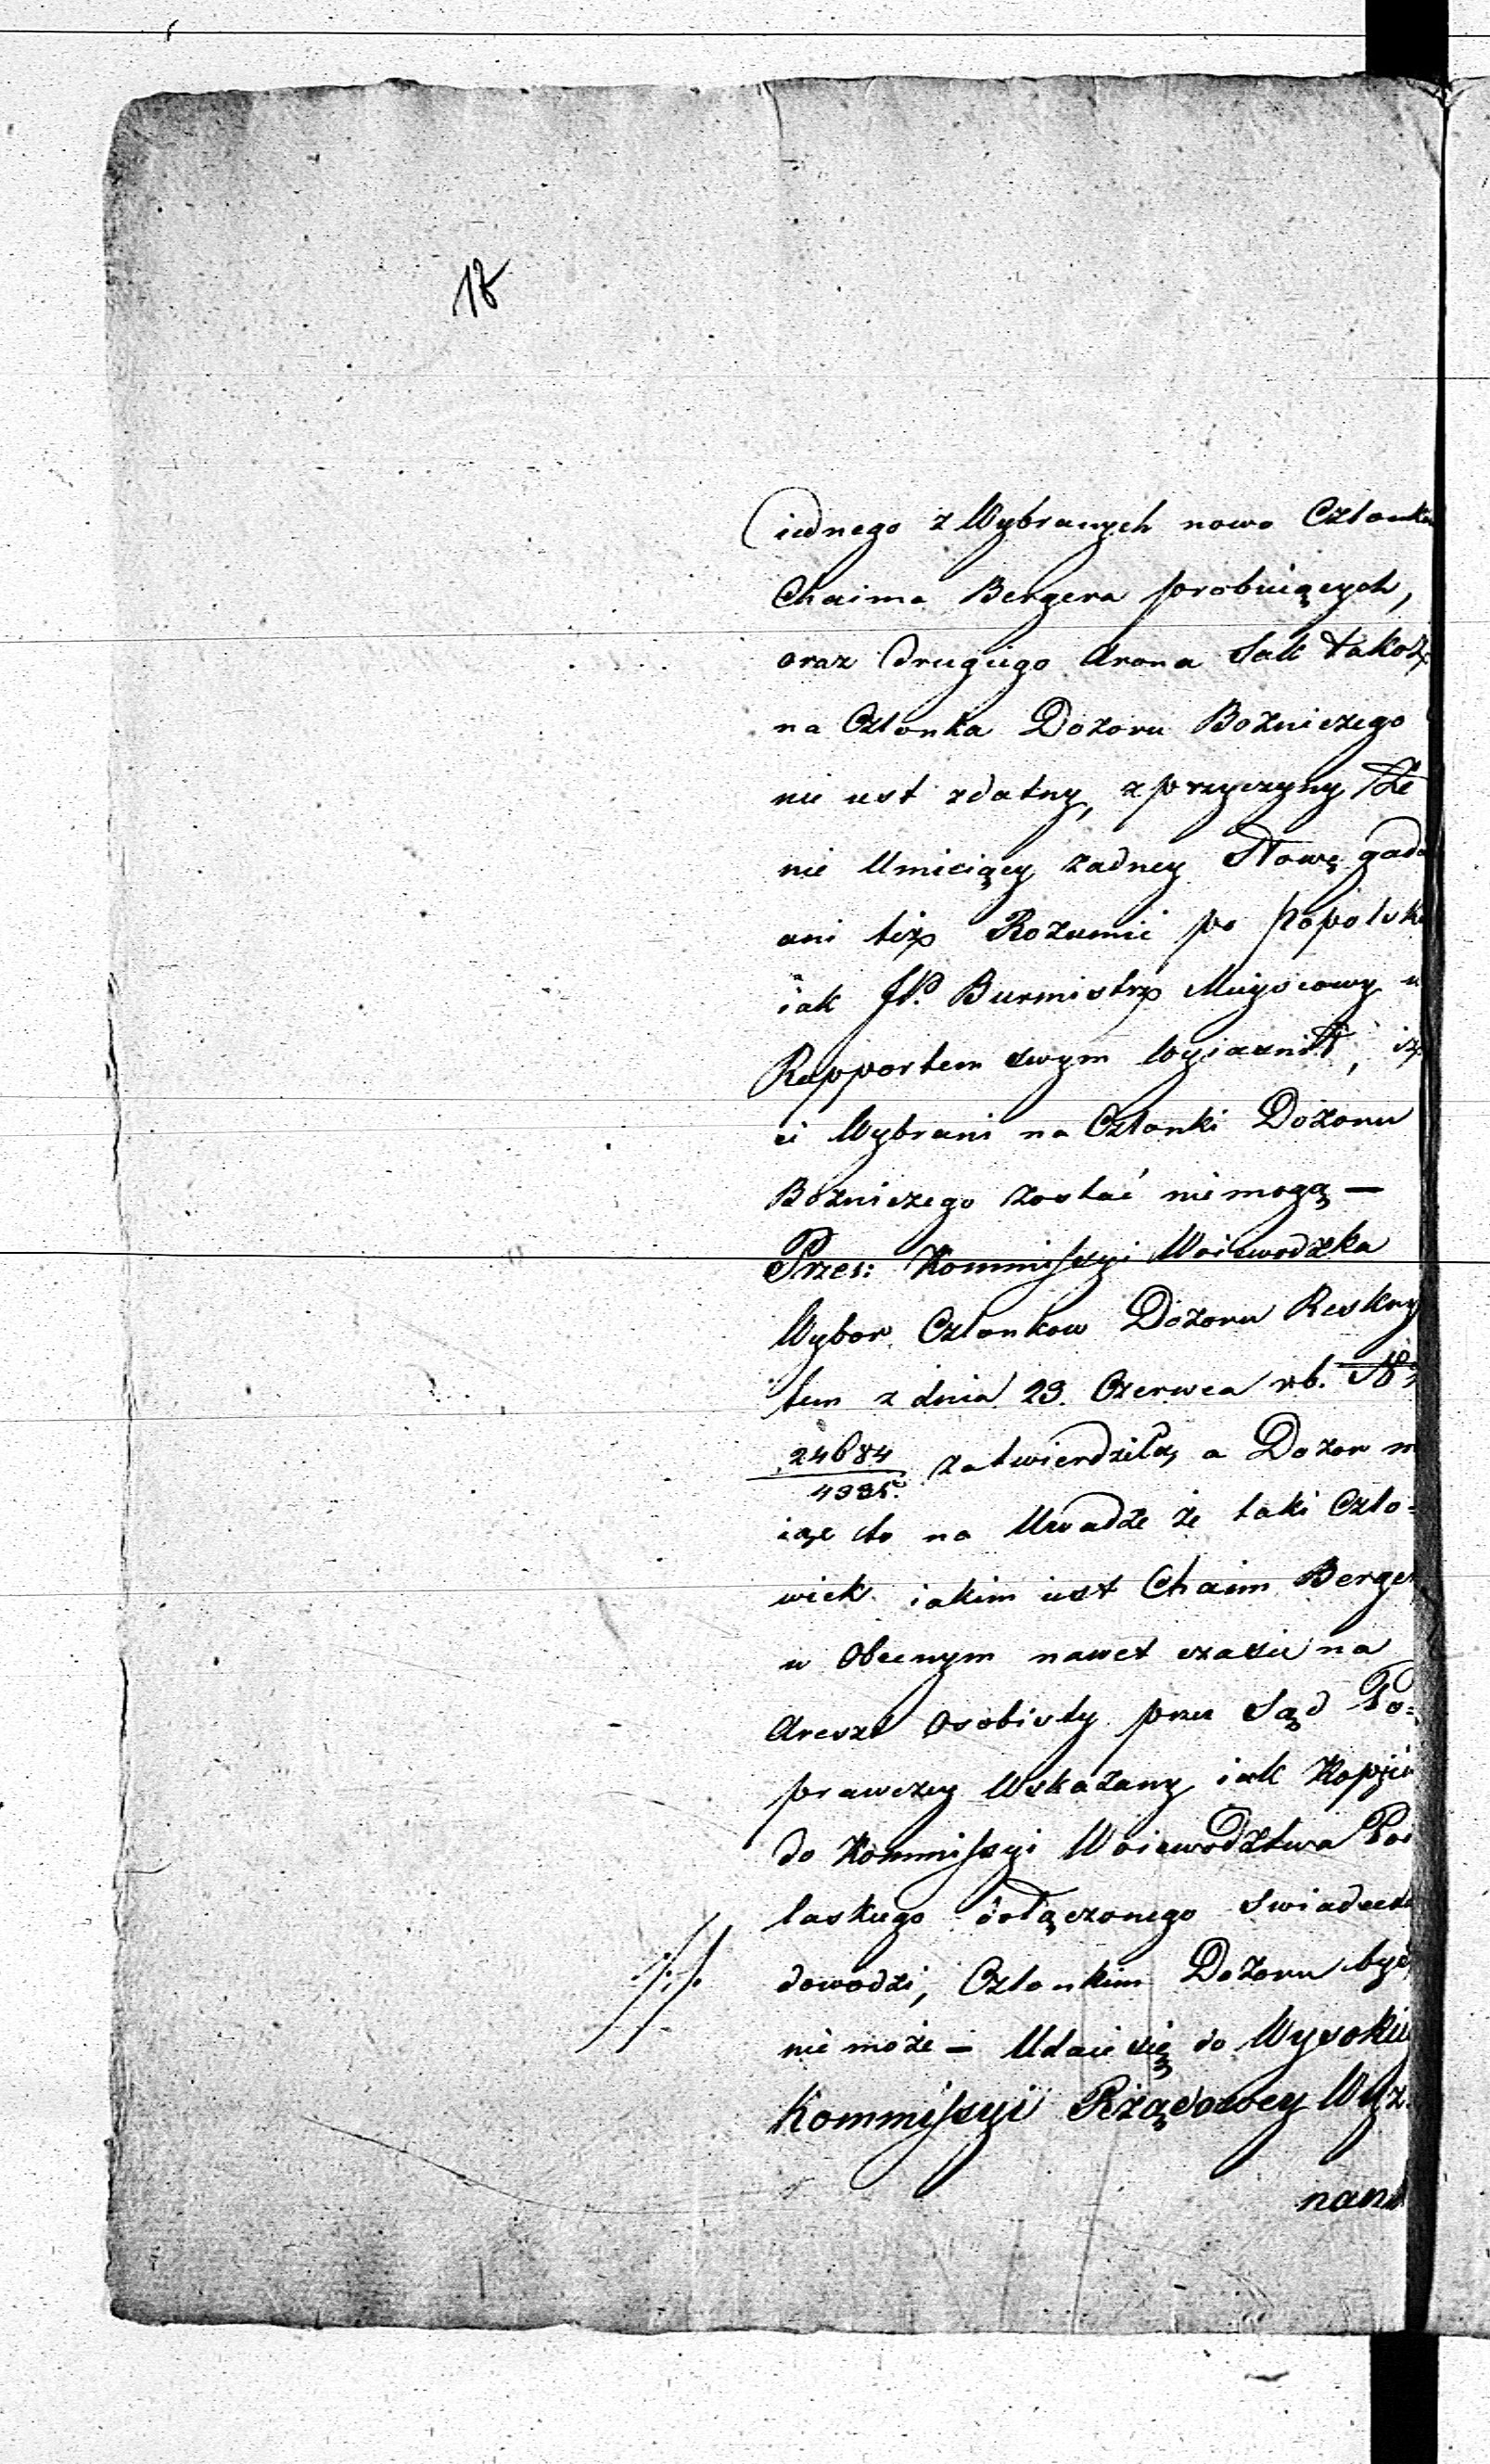 18
iednego z Wybranych nowo Członka
Chaima Bergera probuiących,
oraz drugiego Arona Sak takoż
na Członka Dozoru Bożniczego
nie iest zdatny, z przyczyny że
nie Umieiący żadney Słowę gada
ani też Rozumie po popolsku
iak JP. Burmistrz Mieyscowy
Rapportem swym wyiaśnił, iż
ci Wybrani na Członki Dozoru
Bożniczego zostać nie mogą —
Przes: Kommissyi Woiewodzka
Wybor Członkow Dozoru Reskryp
tem z dnia 23. Czerwca rb. No
24684
4995. zatwierdziła, a Dozor m
iąc to na Uwadze że taki Czło=
wiek iakim iest Chaim Berger
w Obecnym nawet czasie na
Areszt osobisty przez Sąd Po=
prawczy Wskazany iak Kopiia
do Kommissyi Woiewodztwa Pod
laskiego dołączonego swiadect
dowodzi, Członkiem Dozoru być
nie może — Udaie się do Wysokiey
Kommissyi Rządowey Wyz.
nań